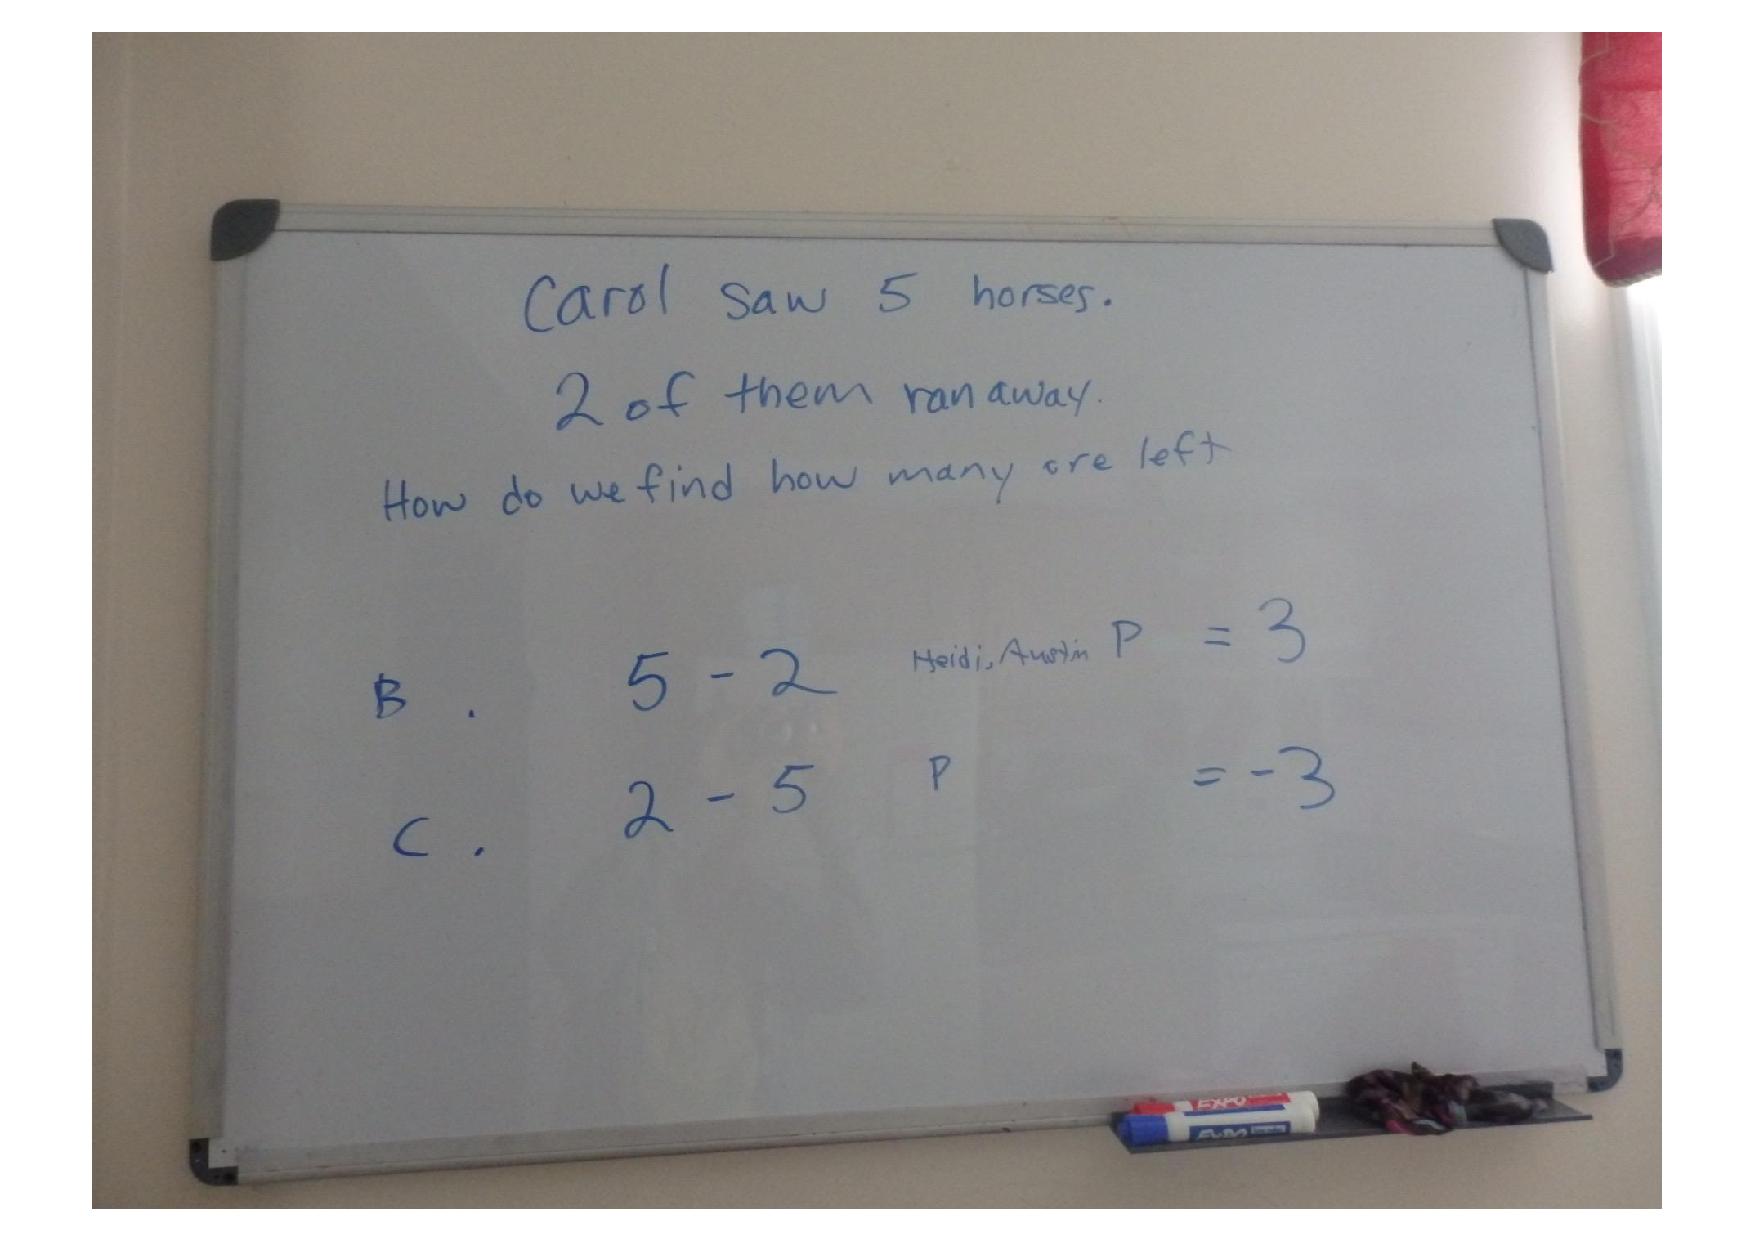 Carol saw 5 horses.
2 of them ran away.
How do we find how many are left
B . 5 - 2 Heidi, Austin P = 3
C . 2 - 5 P = -3
EXPO
EXPO